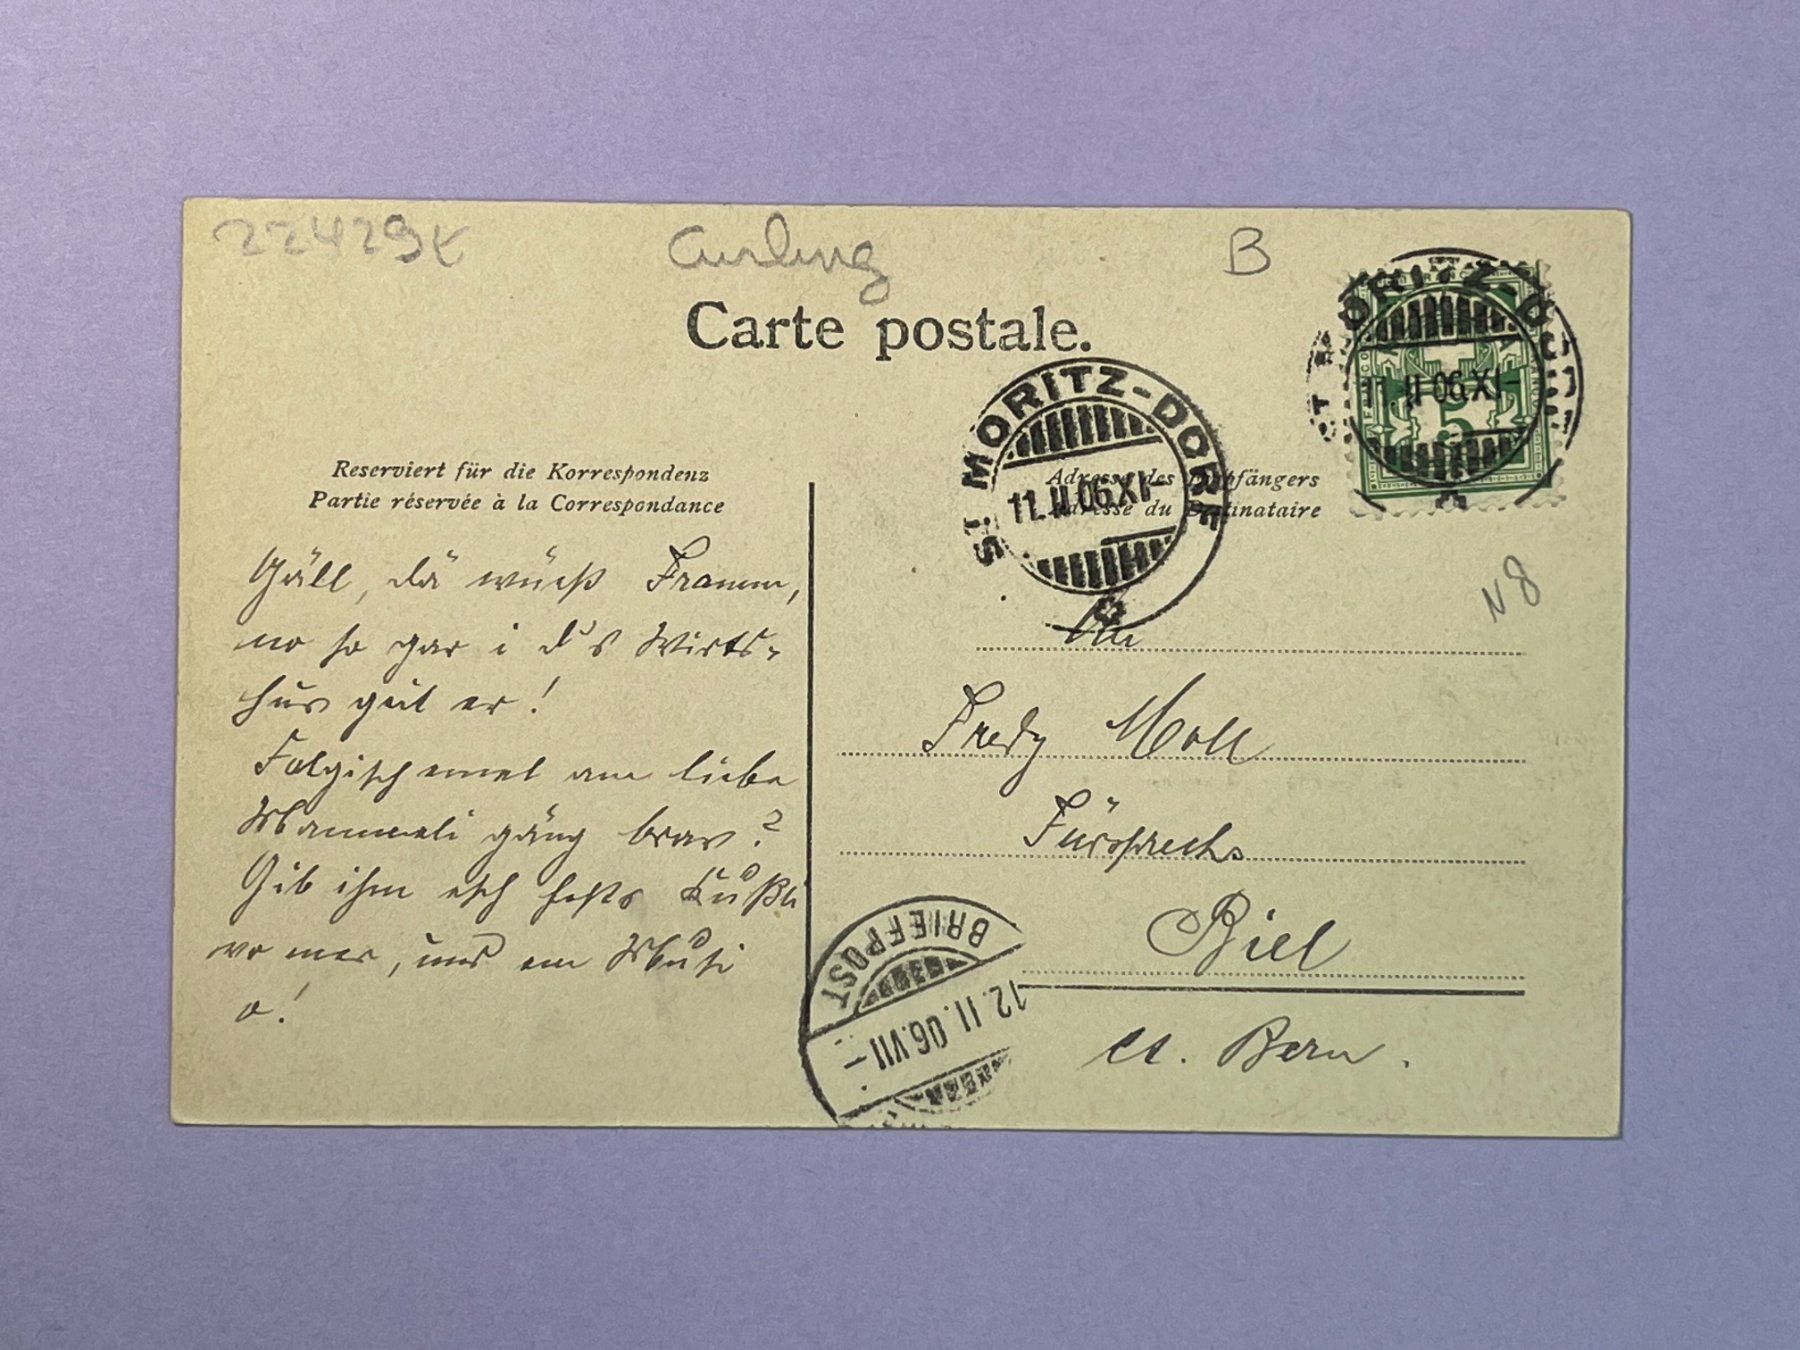 22429
Curling
B
Carte postale.
ST. MORITZ-DORF
11.II.06.XI-
ST. MORITZ-DORF
11.II.06.XI-
5
Reserviert für die Korrespondenz
Partie réservée à la Correspondance
Adresse des Empfängers
Adresse du Destinataire
N8
Gäll, dä wüest Framm,
no so gar i d's Wirts-
hus gut er!
Folgisch emel am liebe
Mammeli gäng brav?
Gib ihm esch Kußli
vo mer, und em Musi
o!
An
Fredy Moll
Fürsprechs
Biel
Ct. Bern.
BRIEFPOST
12.II.06.VII-